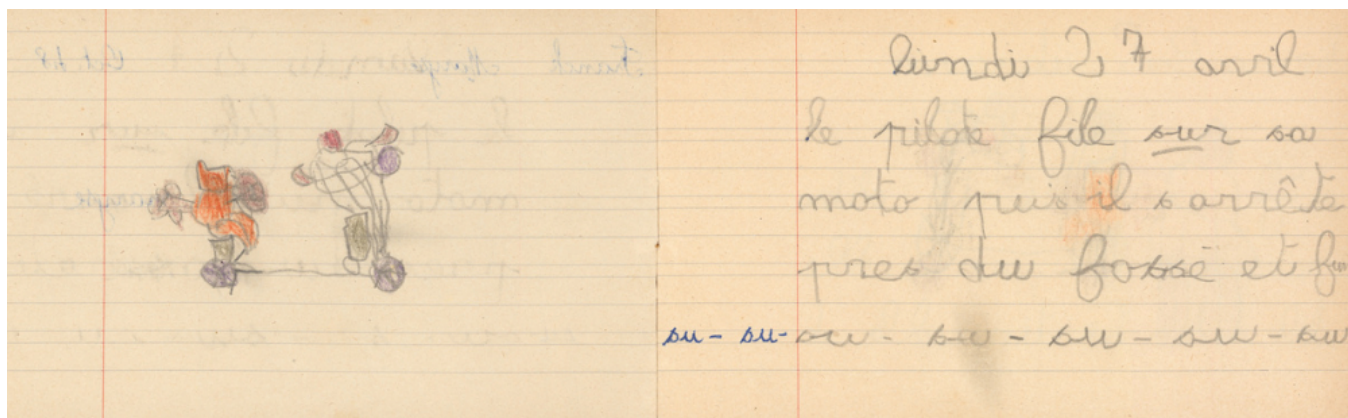 lundi 27 avril
le pilote file sur sa
moto puis il s arrête
pres du fossé et
su - su - su - su - su - su - su